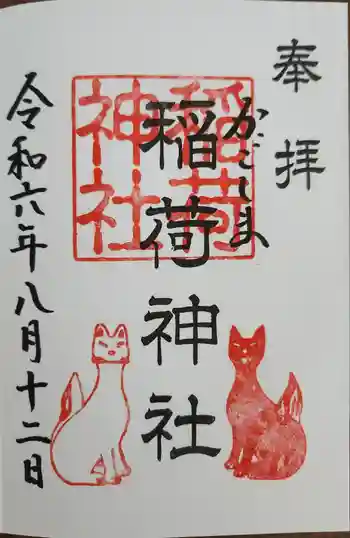 奉拝
かごしま
稲荷神社
稲荷
神社
令和六年八月十二日